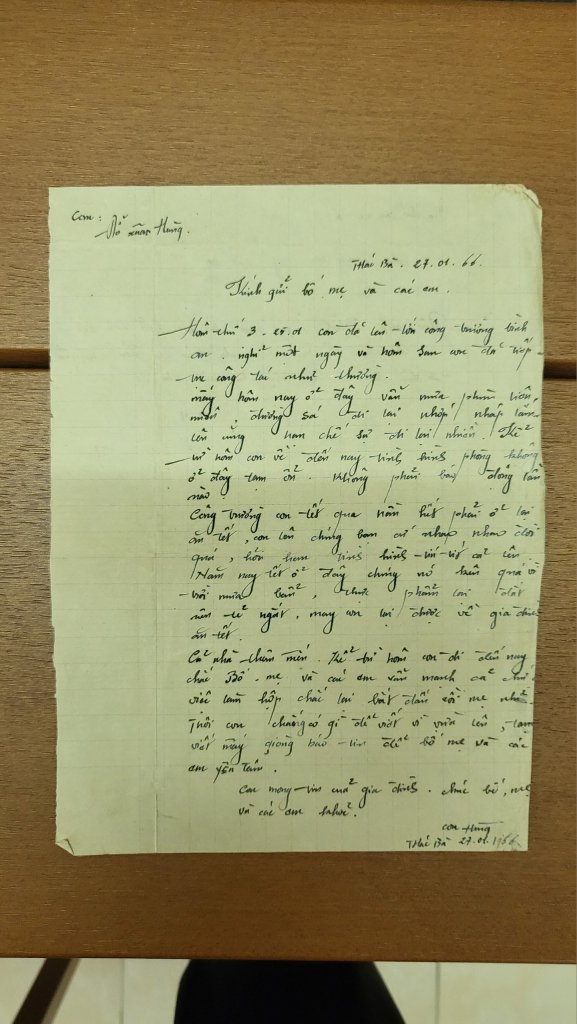 Con :
Đỗ xuân Hùng.
Thác Bà. 27.01.66.
Kính gửi bố mẹ và các em.
Hôm thứ 3 - 25.01 con đã lên tới công trường bình
an. nghỉ một ngày và hôm sau con đã tiếp
tục công tác như thường.
mấy hôm nay ở đây vẫn mưa phùn liên
miên, đường sá đi lại nhớp nháp lắm
lên cũng hạn chế sự đi lại nhiều. Kể
từ hôm con về đến nay tình hình phòng không
ở đây tạm ổn. không phải báo động lần
nào
Công trường con tết qua hầu hết phải ở lại
ăn tết, con lên chúng bạn cứ nhao nhao đòi
quà, hỏi han tình hình tíu tít cả lên.
Năm nay tết ở đây chúng nó kêu quá vì
trời mưa bẩn, thực phẩm lại đắt
nên tẻ ngắt, may con lại được về gia đình
ăn tết.
Cả nhà thân mến. Kể từ hôm con đi đến nay
chắc Bố mẹ và các em vẫn mạnh cả chứ
việc làm hộp chắc lại bắt đầu rồi mẹ nhỉ
Thôi con chẳng có gì để viết vì vừa lên, tạm
viết mấy giòng báo tin để bố mẹ và các
em yên tâm.
Con mong tin của gia đình. chúc bố, mẹ
và các em khoẻ.
con Hùng
Thác Bà 27.01.1966